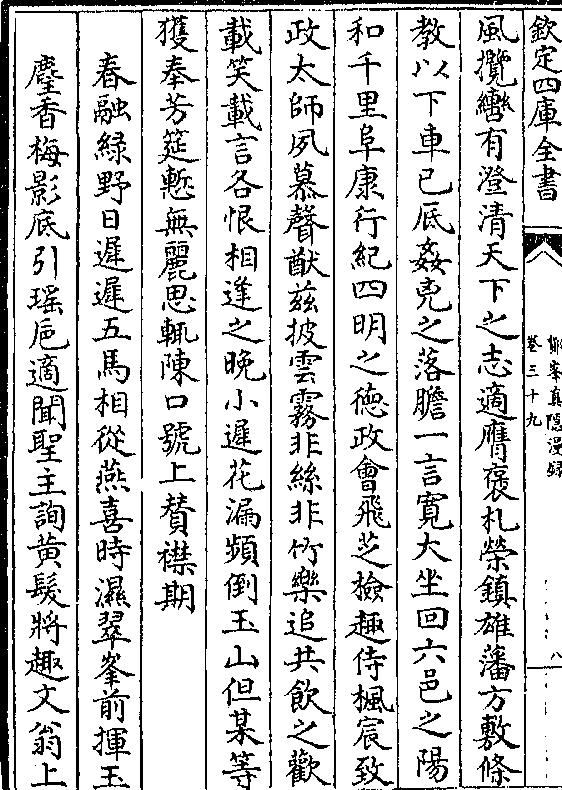 欽定四庫全書
鄮峯真隱漫録
卷三十九
八
風攬轡有澄清天下之志適膺褒札榮鎮雄藩方敷條
教以下車已厎姦兇之落膽一言寛大坐回六邑之陽
和千里阜康行紀四明之徳政會飛芝檢趣侍楓宸致
政太師夙慕聲猷兹披雲霧非絲非竹樂追共飲之歡
載笑載言各恨相逢之晩小遲花漏頻倒玉山但某等
獲奉芳筵慙無麗思輒陳口號上賛襟期
春融緑野日遲遲五馬相從燕喜時濕翠峯前揮玉
麈香梅影底引瑶巵適聞聖主詢黄髮將趣文翁上